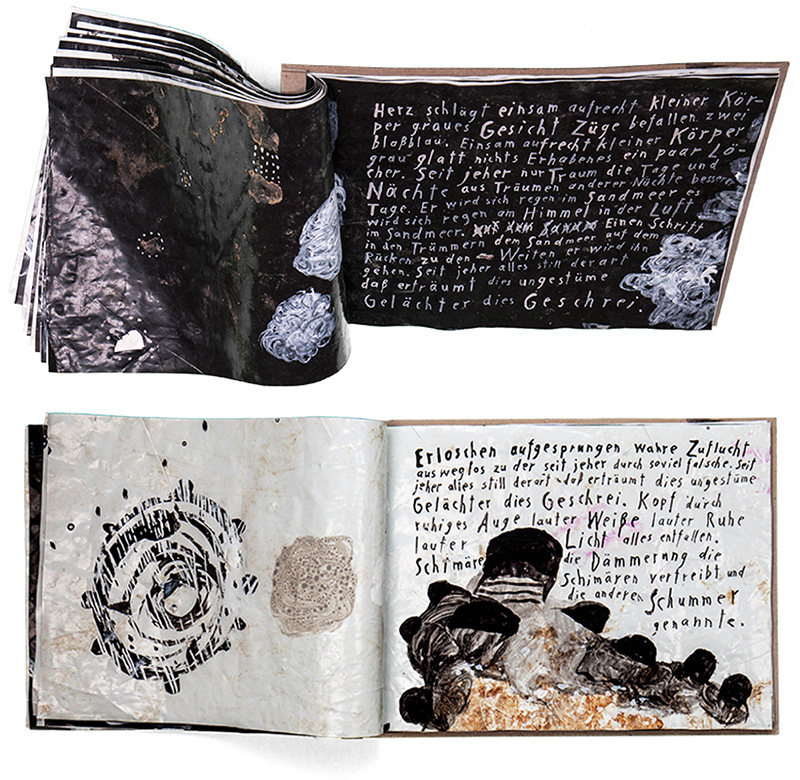 Herz schlägt einsam aufrecht kleiner Kör-
per graues Gesicht Züge befallen zwei
blaßblau. Einsam aufrecht kleiner Körper
grau glatt nichts Erhabenes ein paar Lö-
cher. Seit jeher nur Traum die Tage und
Nächte aus Träumen anderer Nächte besserer
Tage. Er wird sich regen im Sandmeer es
wird sich regen am Himmel in der Luft
im Sandmeer. Einen Schritt
in den Trümmern dem Sandmeer auf dem
Rücken zu den Weiten er wird ihn
gehen. Seit jeher alles still derart
daß erträumt dies ungestüme
Gelächter dies Geschrei.
Erloschen aufgesprungen wahre Zuflucht
ausweglos zu der seit jeher durch soviel falsche. Seit
jeher alles still derart daß erträumt dies ungestüme
Gelächter dies Geschrei. Kopf durch
ruhiges Auge lauter Weiße lauter Ruhe
lauter Licht alles entfallen.
Schimäre die Dämmerung die
Schimären vertreibt und
die anderen Schummer
genannte.